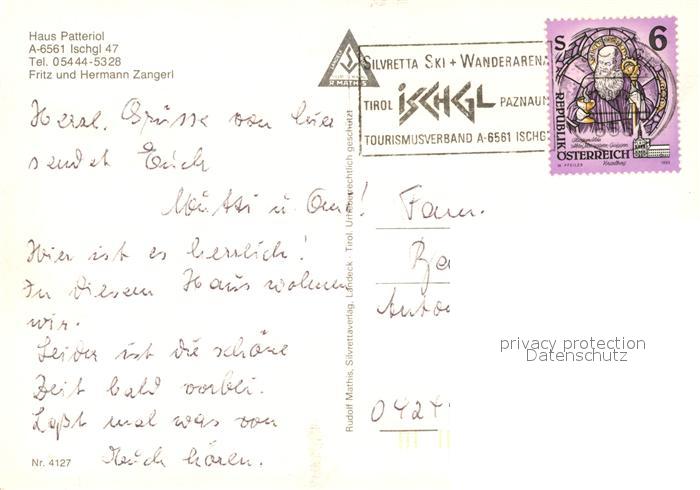 Haus Patteriol
A-6561 Ischgl 47
Tel. 05444-5328
Fritz und Hermann Zangerl
R MATHIS
SILVRETTA SKI + WANDERARENA
TIROL ISCHGL PAZNAUN
TOURISMUSVERBAND A-6561 ISCHGL
S 6
REPUBLIK
ÖSTERREICH
Herzl. Grüsse von hier
sendet Euch
Mutti u. Oma!
Hier ist es herrlich!
In diesem Haus wohnen
wir.
Leider ist die schöne
Zeit bald vorbei.
Laßt mal was von
Euch hören.
Nr. 4127
Rudolf Mathis, Silvrettaverlag, Landeck - Tirol. Urheberrechtlich geschützt
Fam.
Be
0424
privacy protection
Datenschutz